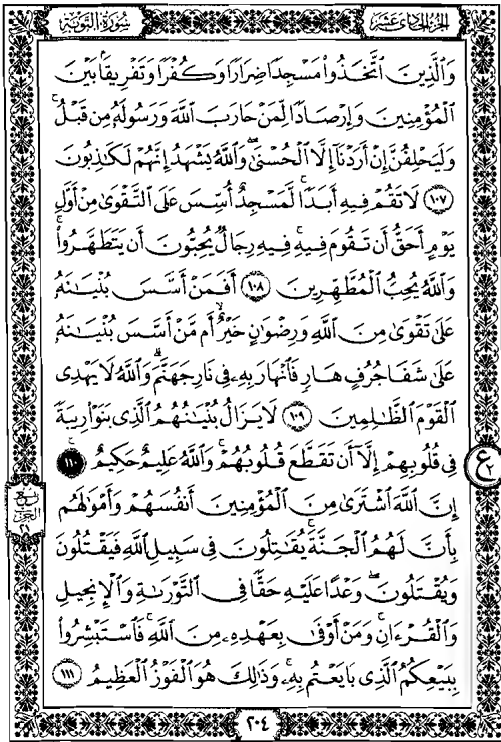 الجزء الحادي عشر
سورة التوبة
وَٱلَّذِينَ ٱتَّخَذُوا۟ مَسْجِدًا ضِرَارًا وَكُفْرًا وَتَفْرِيقًۢا بَيْنَ
ٱلْمُؤْمِنِينَ وَإِرْصَادًا لِّمَنْ حَارَبَ ٱللَّهَ وَرَسُولَهُۥ مِن قَبْلُ ۚ
وَلَيَحْلِفُنَّ إِنْ أَرَدْنَآ إِلَّا ٱلْحُسْنَىٰ ۖ وَٱللَّهُ يَشْهَدُ إِنَّهُمْ لَكَـٰذِبُونَ
١٠٧ لَا تَقُمْ فِيهِ أَبَدًا ۚ لَّمَسْجِدٌ أُسِّسَ عَلَى ٱلتَّقْوَىٰ مِنْ أَوَّلِ
يَوْمٍ أَحَقُّ أَن تَقُومَ فِيهِ ۚ فِيهِ رِجَالٌ يُحِبُّونَ أَن يَتَطَهَّرُوا۟ ۚ
وَٱللَّهُ يُحِبُّ ٱلْمُطَّهِّرِينَ ١٠٨ أَفَمَنْ أَسَّسَ بُنْيَـٰنَهُۥ
عَلَىٰ تَقْوَىٰ مِنَ ٱللَّهِ وَرِضْوَٰنٍ خَيْرٌ أَم مَّنْ أَسَّسَ بُنْيَـٰنَهُۥ
عَلَىٰ شَفَا جُرُفٍ هَارٍ فَٱنْهَارَ بِهِۦ فِى نَارِ جَهَنَّمَ ۗ وَٱللَّهُ لَا يَهْدِى
ٱلْقَوْمَ ٱلظَّـٰلِمِينَ ١٠٩ لَا يَزَالُ بُنْيَـٰنُهُمُ ٱلَّذِى بَنَوْا۟ رِيبَةً
فِى قُلُوبِهِمْ إِلَّآ أَن تَقَطَّعَ قُلُوبُهُمْ ۗ وَٱللَّهُ عَلِيمٌ حَكِيمٌ ١١٠
إِنَّ ٱللَّهَ ٱشْتَرَىٰ مِنَ ٱلْمُؤْمِنِينَ أَنفُسَهُمْ وَأَمْوَٰلَهُم
بِأَنَّ لَهُمُ ٱلْجَنَّةَ ۚ يُقَـٰتِلُونَ فِى سَبِيلِ ٱللَّهِ فَيَقْتُلُونَ
وَيُقْتَلُونَ ۖ وَعْدًا عَلَيْهِ حَقًّا فِى ٱلتَّوْرَىٰةِ وَٱلْإِنجِيلِ
وَٱلْقُرْءَانِ ۚ وَمَنْ أَوْفَىٰ بِعَهْدِهِۦ مِنَ ٱللَّهِ ۚ فَٱسْتَبْشِرُوا۟
بِبَيْعِكُمُ ٱلَّذِى بَايَعْتُم بِهِۦ ۚ وَذَٰلِكَ هُوَ ٱلْفَوْزُ ٱلْعَظِيمُ ١١١
ع ٢
ربع
الحزب
٢١
٢٠٤